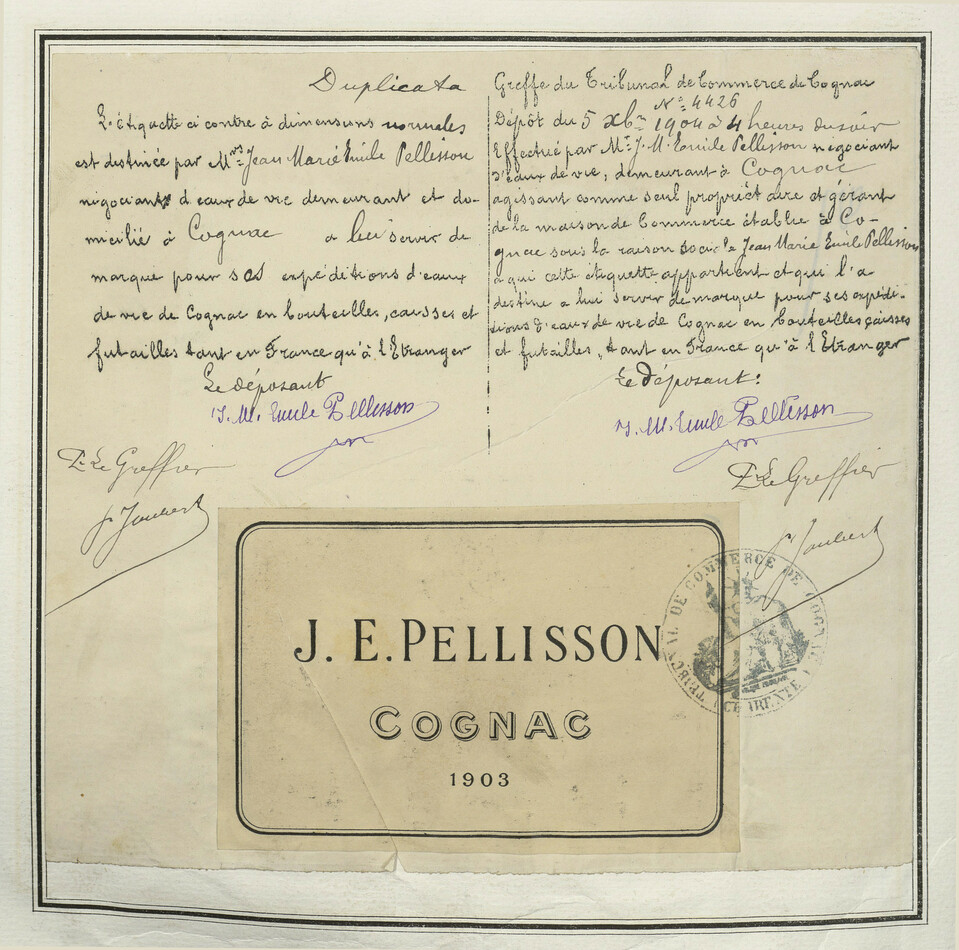 Duplicata
L'étiquette ci contre à dimensions normales
est destinée par Mrs Jean Marie Emile Pellisson
négociant d'eaux de vie demeurant et do-
micilié à Cognac a lui servir de
marque pour ses expéditions d'eaux
de vie de Cognac en bouteilles, caisses et
futailles tant en France qu'à l'Etranger
Le déposant
J. M. Emile Pellisson
Pr Le Greffier
Joubert
Greffe du Tribunal de Commerce de Cognac
No 4426
Dépôt du 5 Xbre 1904 à 4 heures du soir
Effectué par Mr J. M. Emile Pellisson négociant
d'eaux de vie, demeurant à Cognac
agissant comme seul propriétaire et gérant
de la maison de Commerce établie à Co-
gnac sous la raison sociale Jean Marie Emile Pellisson
a qui cette étiquette appartient et qui l'a
destine a lui servir de marque pour ses expédi-
tions d'eaux de vie de Cognac en bouteilles caisses
et futailles, tant en France qu'à l'Etranger
Le déposant:
J. M. Emile Pellisson
Pr Le Greffier
Joubert
J. E. PELLISSON
COGNAC
1903
TRIBUNAL DE COMMERCE DE COGNAC (CHARENTE)